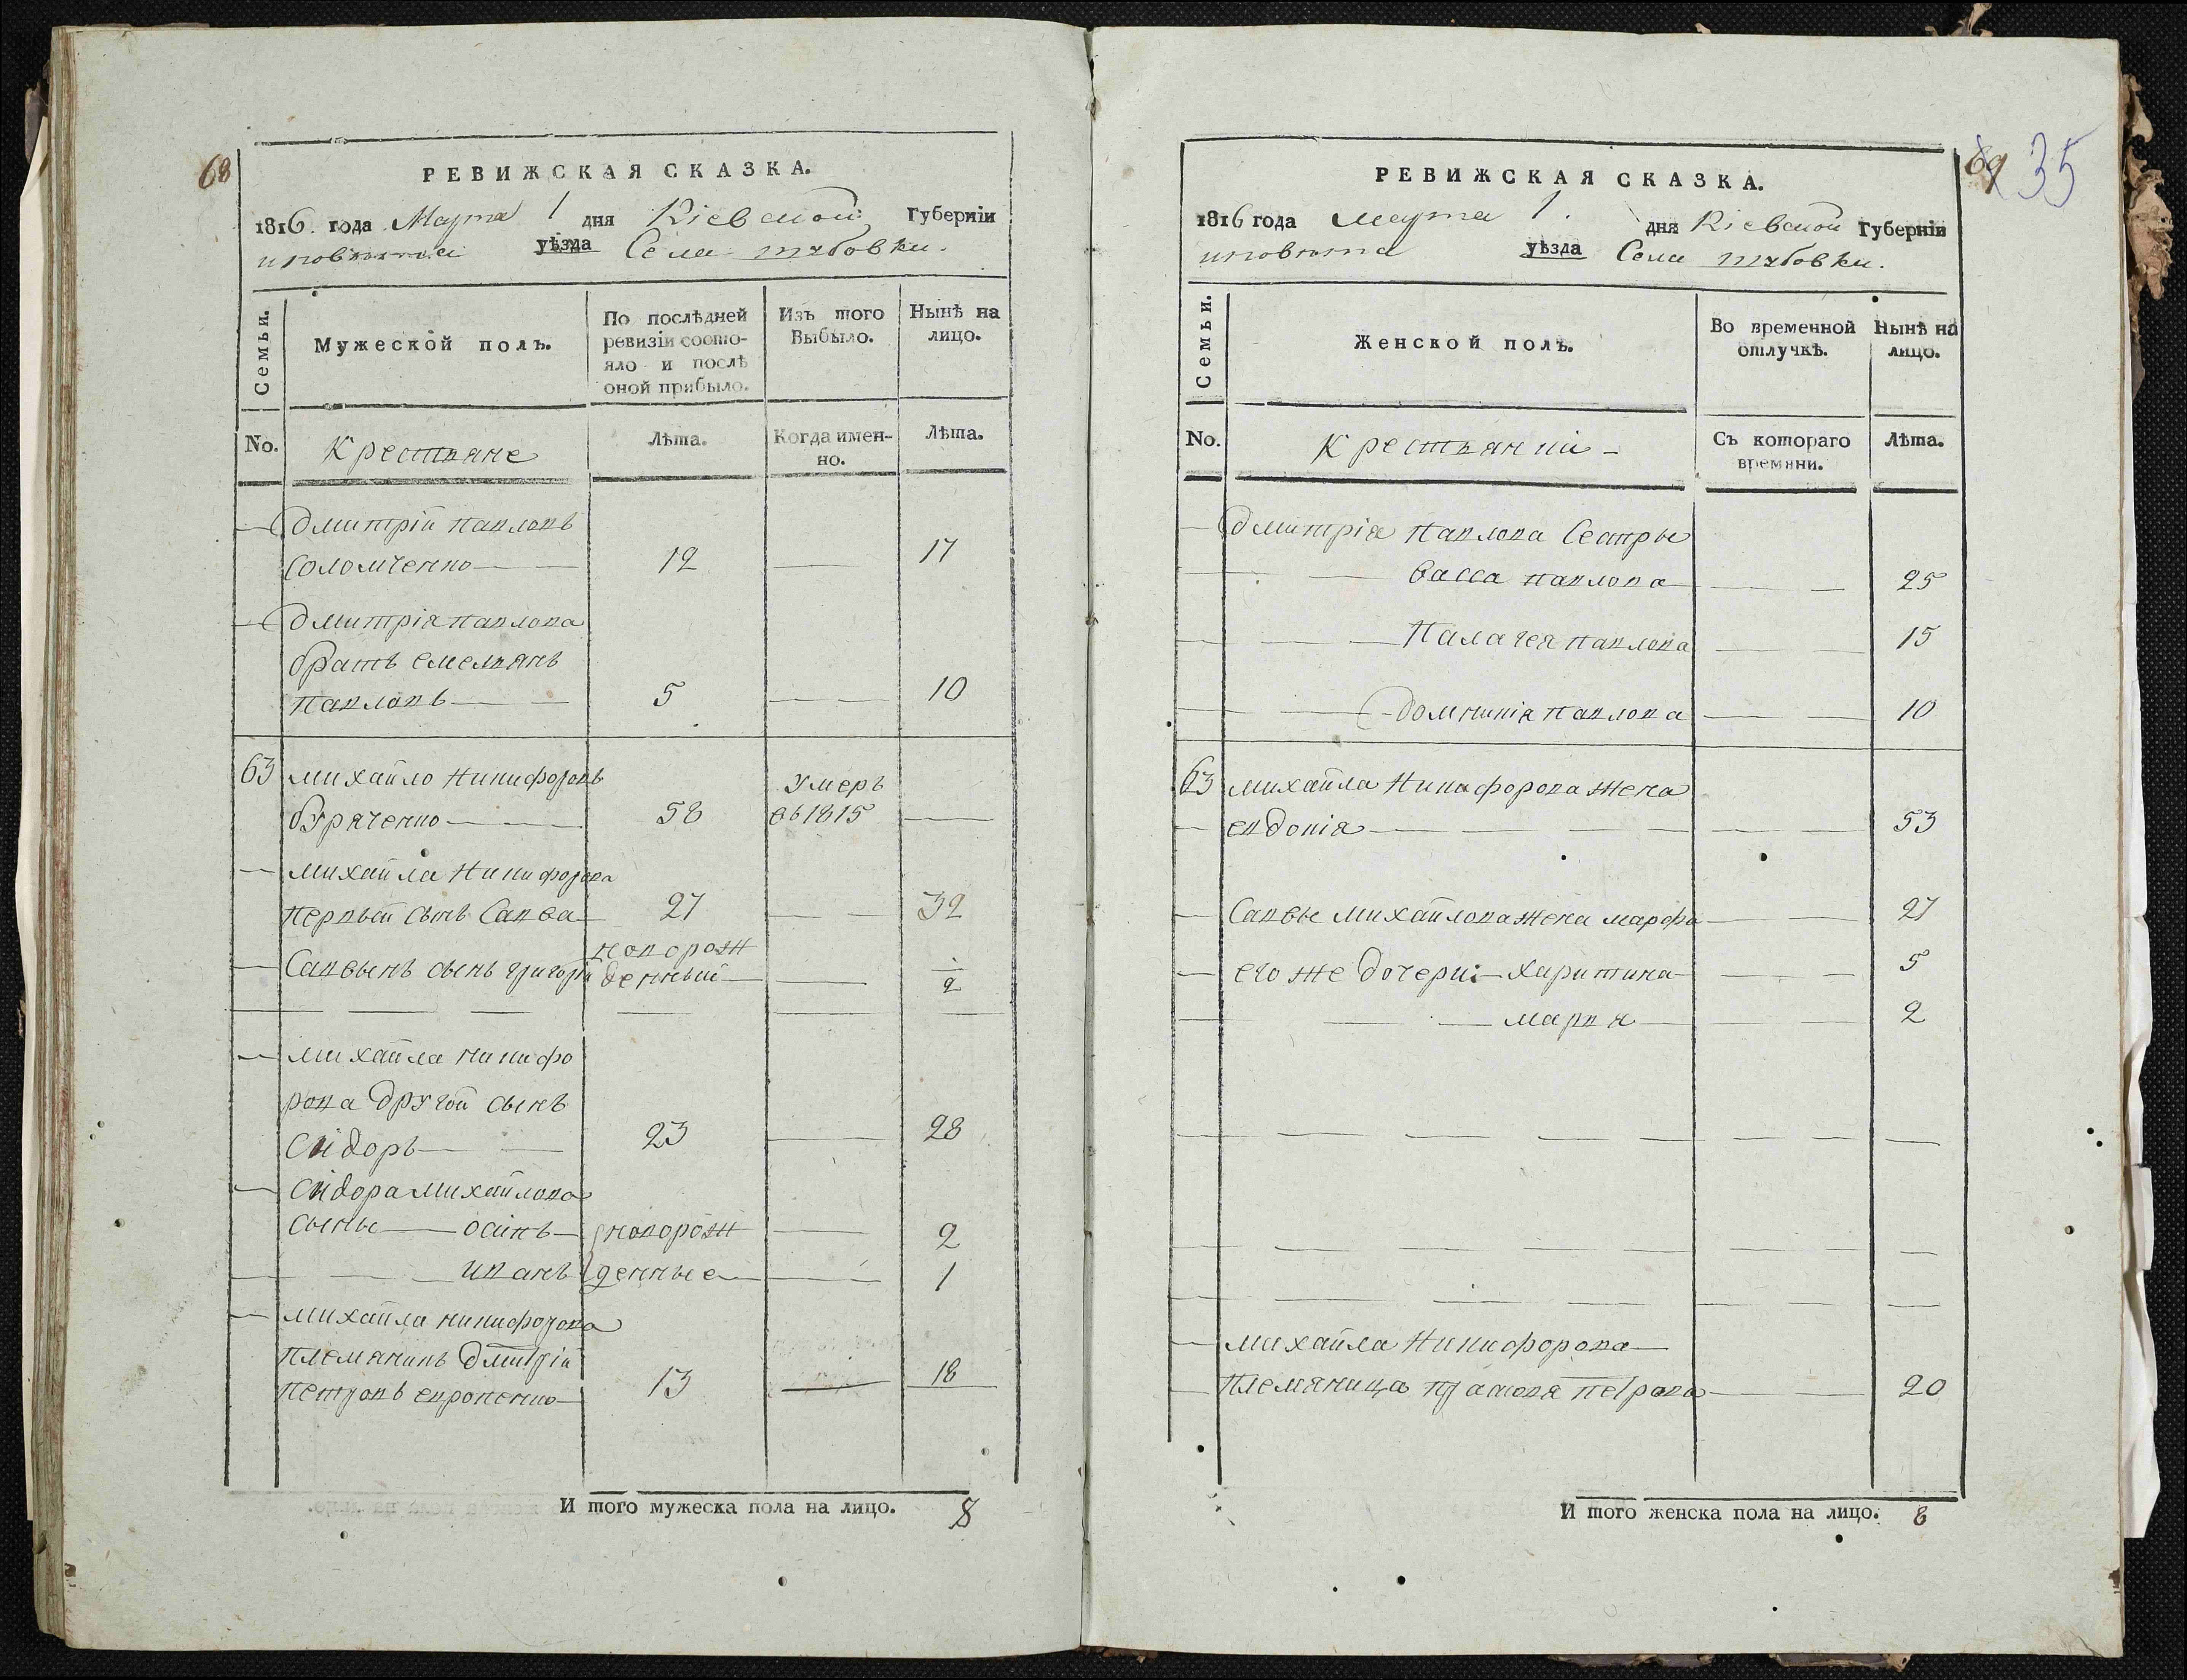 68
РЕВИЖСКАЯ СКАЗКА.
1816 года Марта 1 дня Кіевской Губерніи
уѣзда Села
Семьи.
Мужеской полъ.
По послѣдней ревизіи состояло и послѣ оной прибыло.
Изъ того Выбыло.
Нынѣ на лицо.
No.
Крестьяне
Лѣта.
Когда именно.
Лѣта.
Дмитрій павловъ
Соломченко 12 17
Дмитрія павлова
братъ емельянъ
павловъ 5 10
63 михайло Никифоровъ умеръ
буряченко 58 въ 1815
михайла Никифорова
первый сынъ Савва 27 32
Саввынъ сынъ григорій новорож
денный 2
михайла никифо
рова другой сынъ
Сидоръ 23 28
Сидора михайлова
сыны осипъ новорож 2
иванъ денные 1
михайла никифорова
племяникъ Дмитрій
петровъ 13 18
И того мужеска пола на лицо. 8
69 35
РЕВИЖСКАЯ СКАЗКА.
1816 года Марта 1. дня Кіевской Губерніи
уѣзда Села
Семьи.
Женской полъ.
Во временной отлучкѣ.
Нынѣ на лицо.
No.
Крестьянки
Съ котораго времяни.
Лѣта.
Дмитрія павлова Сестры
Васса павлова 25
Палагея павлова 15
Домникія павлова 10
63 михайла Никифорова жена
евдокія 53
Саввы михайлова жена марфа 27
его же дочери: харитина 5
марья 2
михайла Никифорова
племяница петрова 20
И того женска пола на лицо. 8